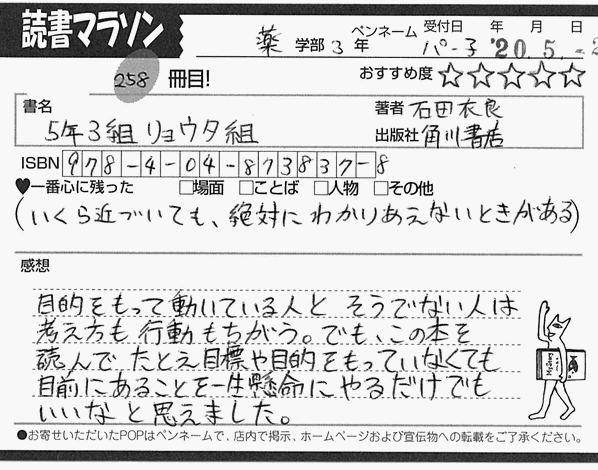 読書マラソン
薬 学部 3 年 ペンネーム パー子 受付日 年 月 日 '20.5.-2
258 冊目!
おすすめ度 ☆☆☆☆☆
書名 5年3組リョウタ組
著者 石田衣良
出版社 角川書店
ISBN 978-4-04-873837-8
♥一番心に残った □場面 □ことば □人物 □その他
(いくら近づいても、絶対にわかりあえないときがある)
感想
目的をもって動いている人と そうでない人は
考え方も行動もちがう。でも、この本を
読んで たとえ目標や目的をもっていなくても
目前にあることを一生懸命にやるだけでも
いいなと思えました。
●お寄せいただいたPOPはペンネームで、店内で掲示、ホームページおよび宣伝物への転載をご了承ください。